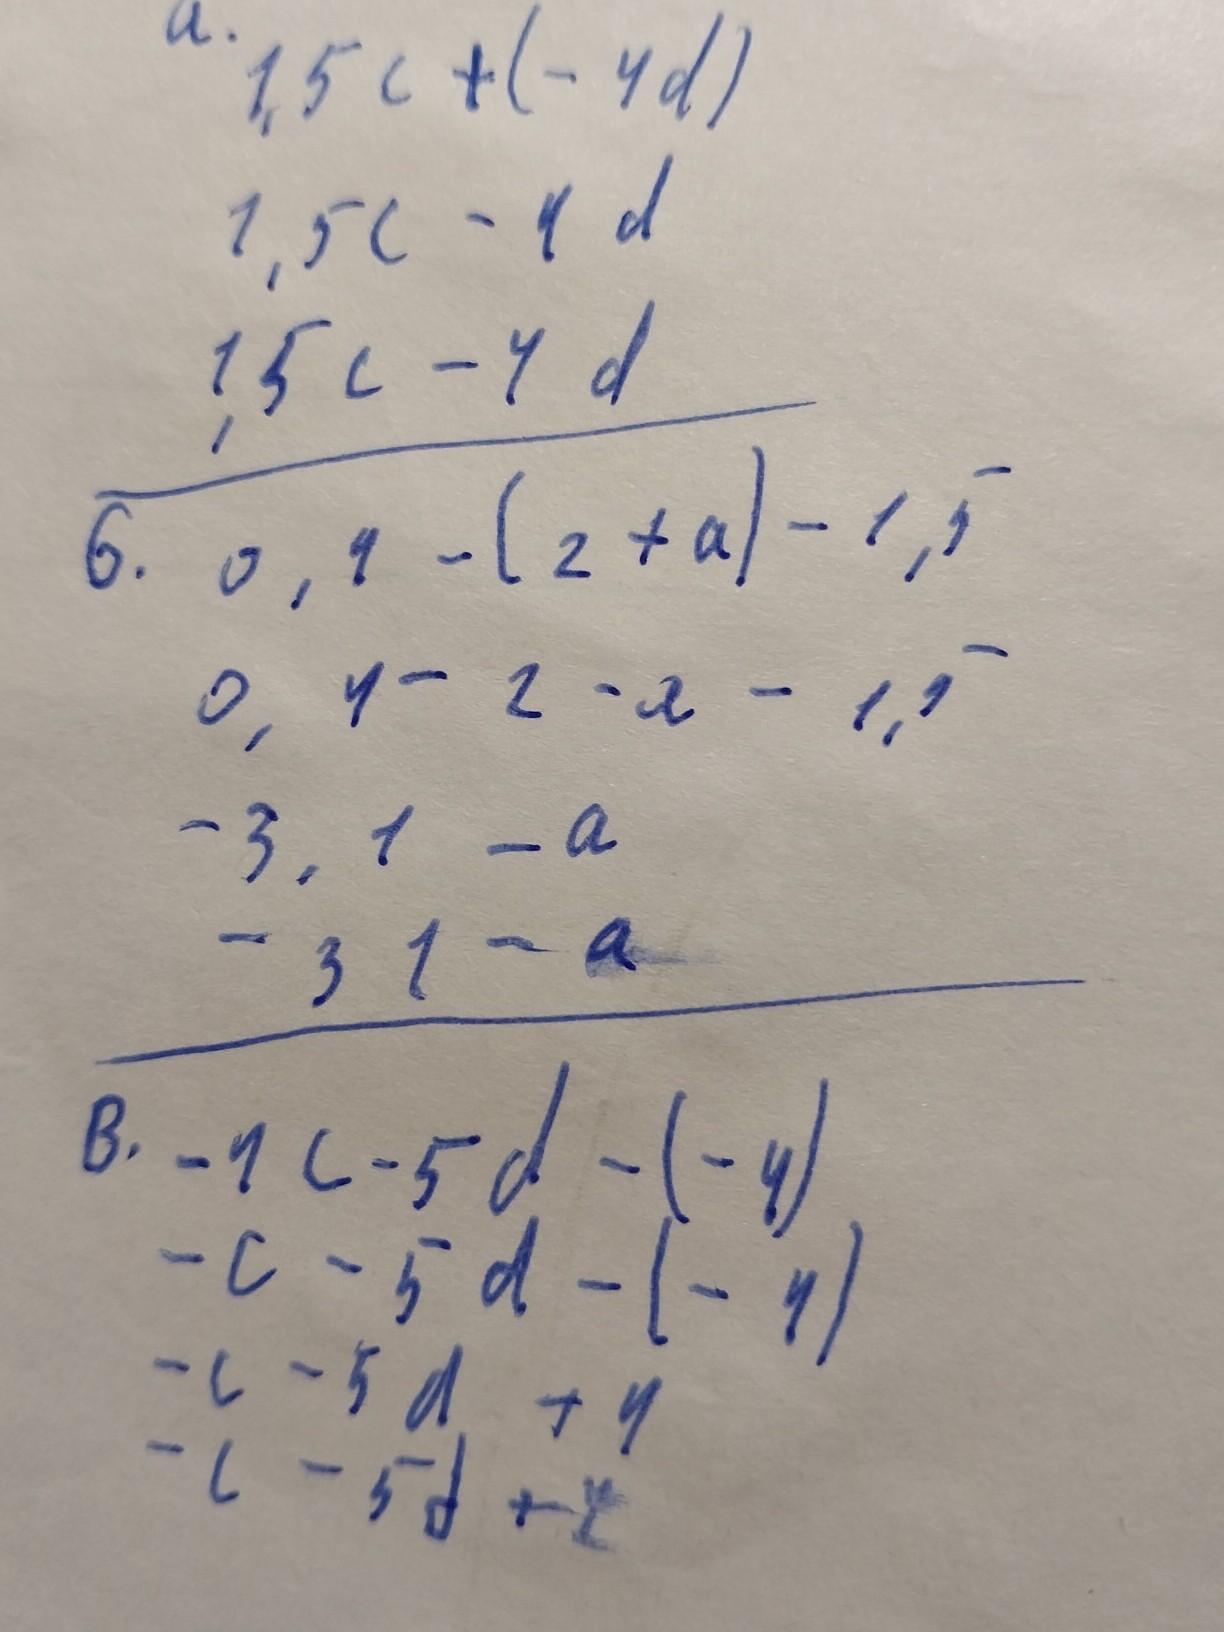 а.
1,5c + (- 4d)
1,5c - 4d
1,5c - 4d
б. 0,4 - (2 + a) - 1,5
0,4 - 2 - a - 1,5
-3,1 - a
- 3 1 - a
В. -1c - 5d - (-4)
-c - 5d - (- 4)
-c - 5d + 4
-c - 5d +